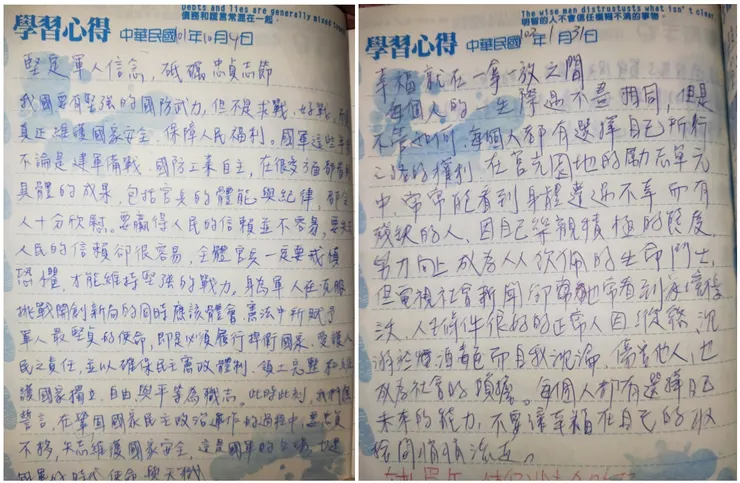 Debts and lies are generally mixed
債務和謊言常混在一起。
學習心得 中華民國101年10月4日
堅定軍人信念,砥礪忠貞志節
我國要有堅強的國防武力,但不是求戰、好戰,而
真正維護國家安全、保障人民福利。國軍這些年
不論是建軍備戰、國防工業自主,在很多方面都有
具體的成果,包括官兵的體能與紀律,都令
人十分欣慰。要贏得人民的信賴並不容易,要失去
人民的信賴卻很容易,全體官兵一定要戒慎
恐懼,才能維持堅強的戰力,身為軍人在克服
挑戰開創新局的同時應該體會憲法中所賦予
軍人最堅貞的使命,即是必須履行捍衛國家、愛護人
民之責任,並以確保民主憲政體制、領土完整和
護國家獨立、自由與平等為職志。此時此刻,我們
誓言,在鞏固國家民主政治運作的過程中,忠貞
不移,矢志維護國家安全,這是國軍的
國軍的時代使命與天職
The wise man distrusts what isn't clear
明智的人不會信任模糊不清的事物。
學習心得 中華民國102年1月31日
幸福就在一拿放之間
每個人的一生際遇不盡相同,但是
不管如何,每個人都有選擇自己所行
之路的權利,在官兵園地的勵志單元
中,常常能看到身體遭遇不幸而有
殘缺的人,因自己樂觀積極的態度,
努力向上成為人人欽佩的生命鬥士,
但電視社會新聞卻常常看到
人生條件很好的正常人因 沉
溺於煙酒毒色而自我沉淪,傷害他人,也
成為社會的負擔。每個人都有選擇自己
未來的能力,不要讓幸福在自己的取
捨間悄悄流逝。